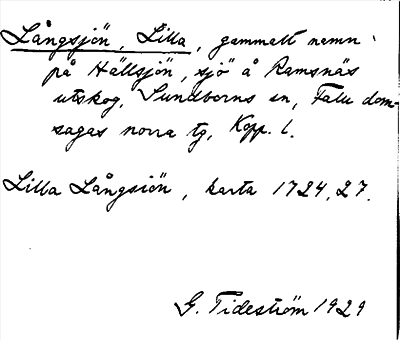 Långsjön, Lilla, gammalt namn
på Hällsjön, sjö å Ramsnäs
utskog, Sundborns sn, Falu dom-
sagas norra tg, Kopp. l.
Lilla Långsiön, karta 1724, 27.
G. Tideström 1929